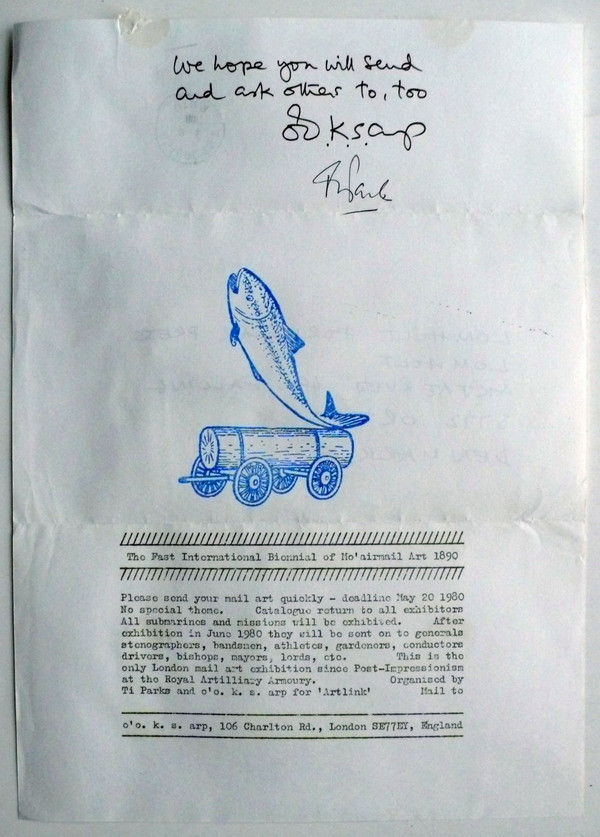 We hope you will send
and ask others to, too
O'O.K.S.arp
Ti Parks
The Fast International Biennial of Mo'airmail Art 1890
Please send your mail art quickly - deadline May 20 1980
No special theme. Catalogue return to all exhibitors
All submarines and missions will be exhibited. After
exhibition in June 1980 they will be sent on to generals
stenographers, bandsmen, athletes, gardeners, conductors
drivers, bishops, mayors, lords, etc. This is the
only London mail art exhibition since Post-Impressionism
at the Royal Artilliary Armoury. Organised by
Ti Parks and o'o. k. s. arp for 'Artlink' Mail to
o'o. k. s. arp, 106 Charlton Rd., London SE77EY, England